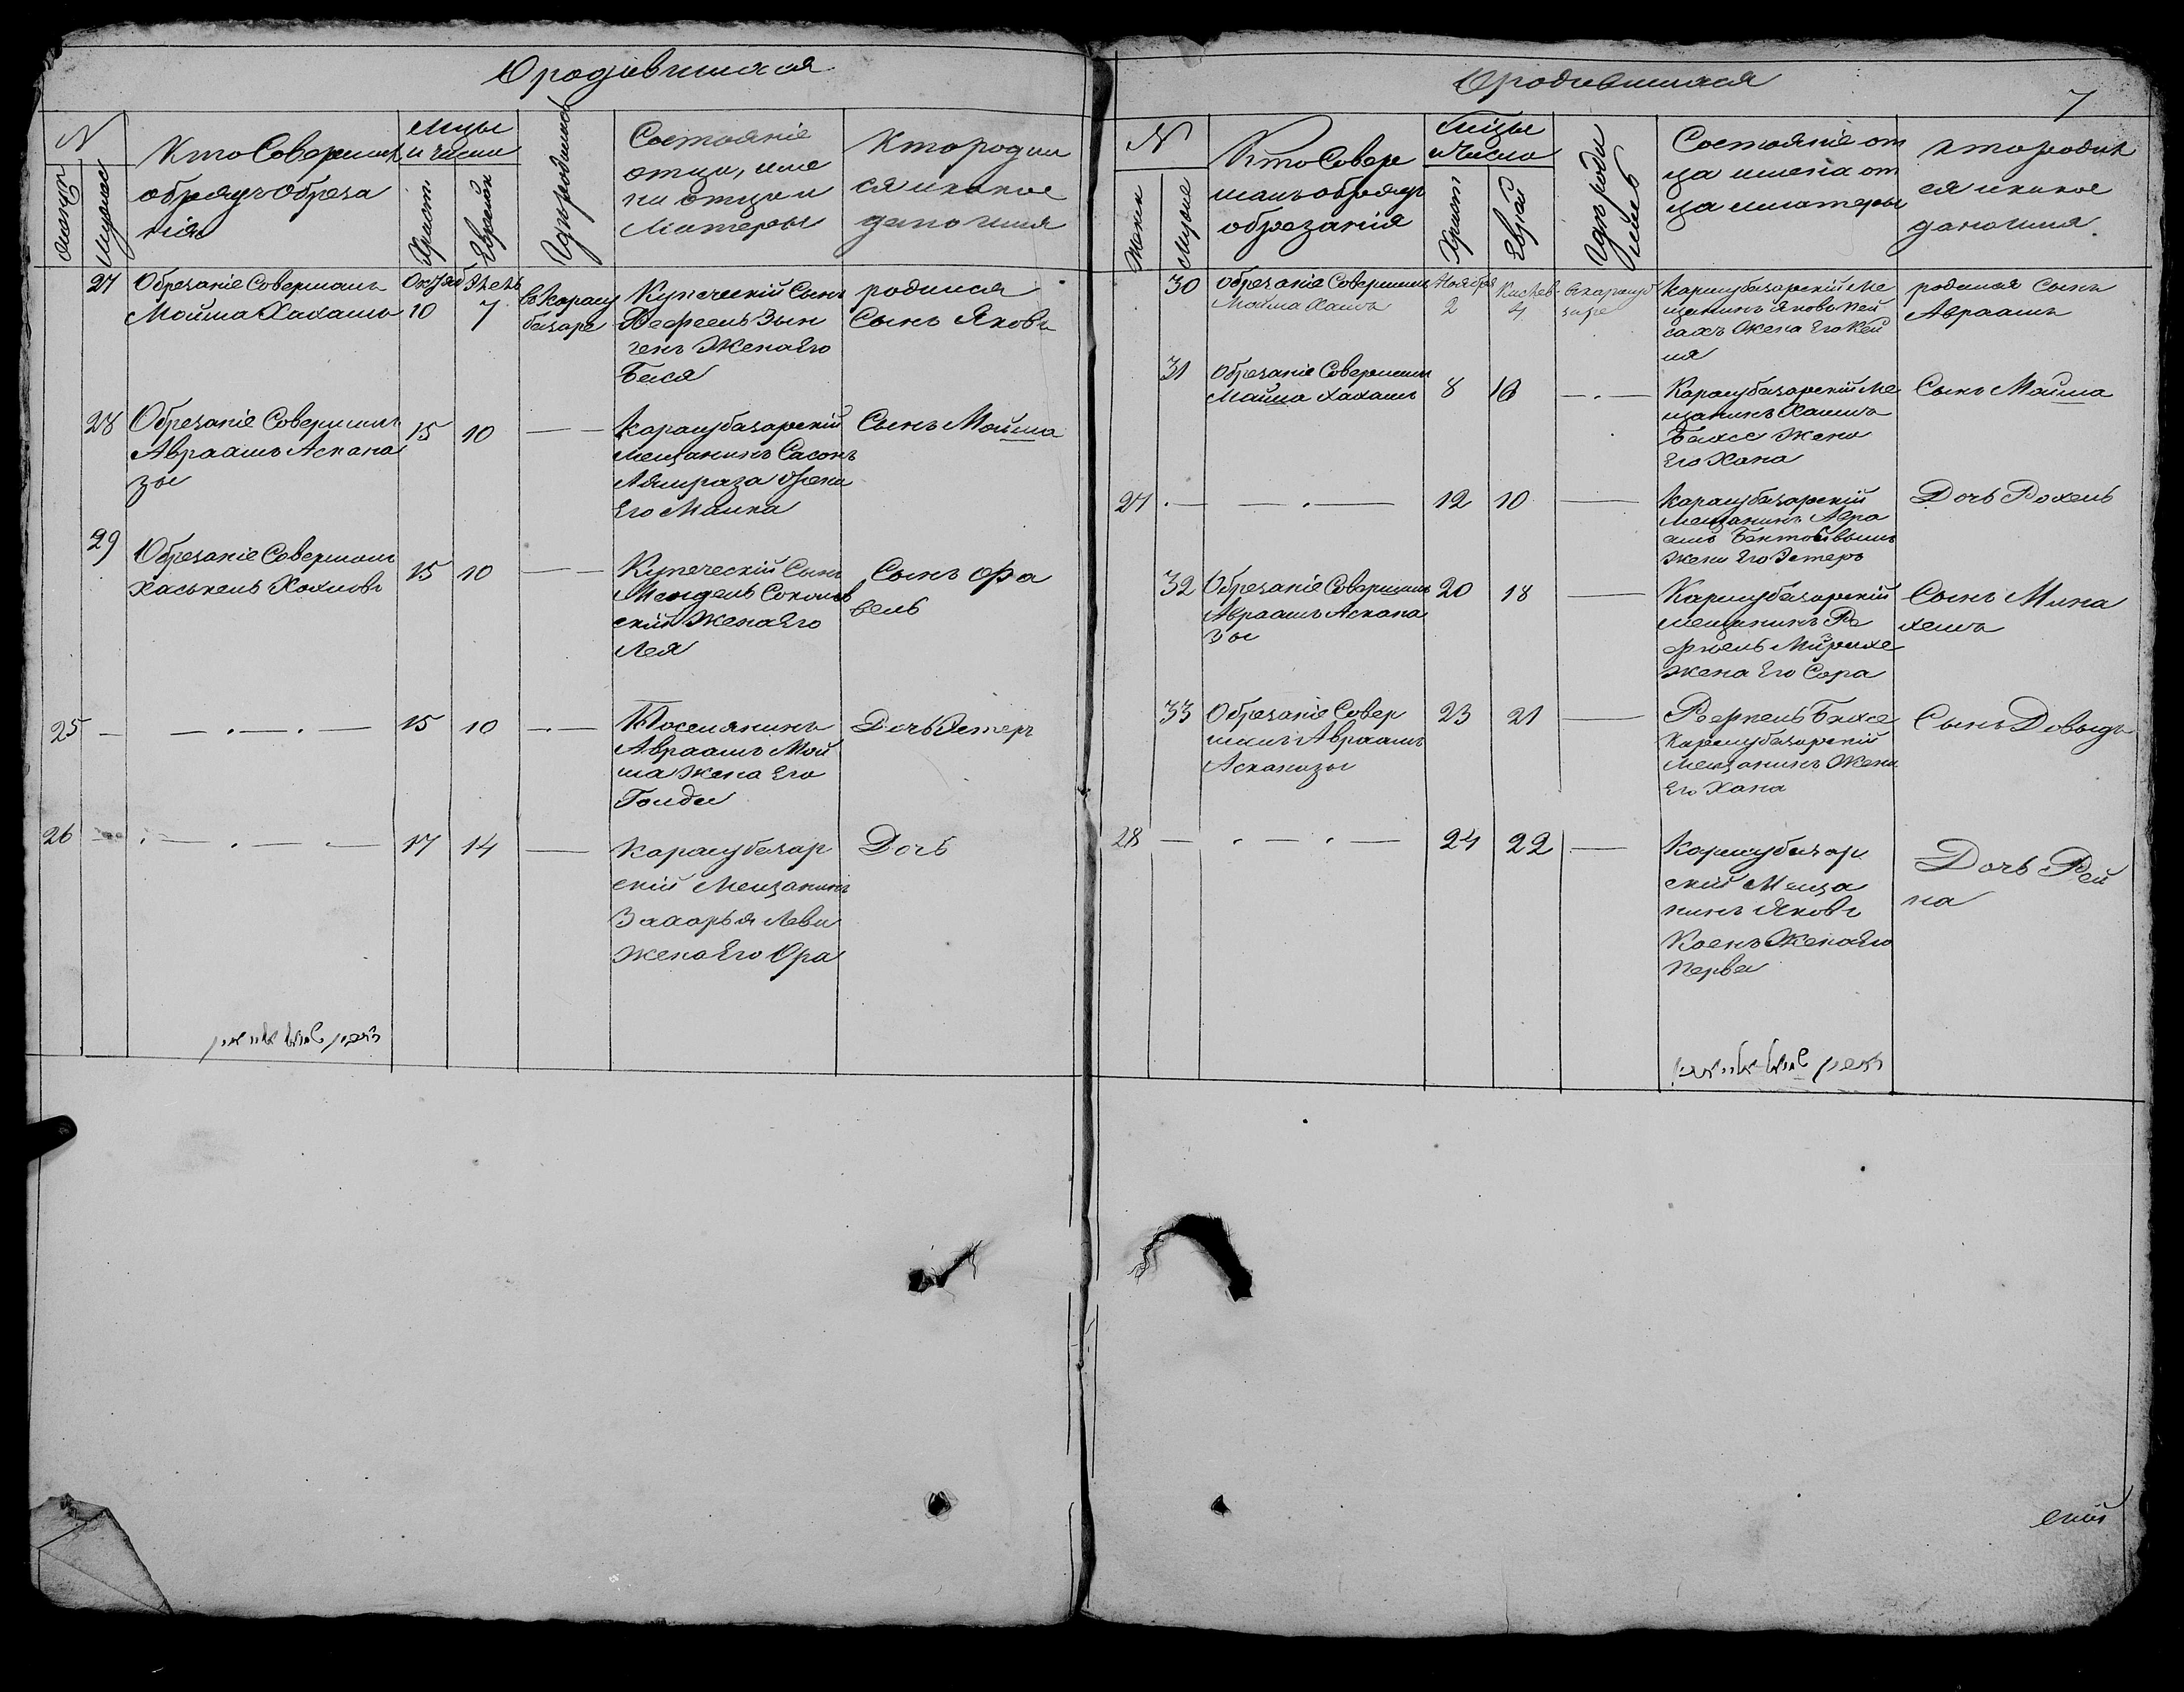 О родившихся
N
Женск
Мужеск
Кто Совершил
обряд Обреза
нія
Мцы
и числа
Христ
Еврейск
Где родился
Состояніе
отца, име
на отца и
Матеры
Кто родил
ся и какое
дано имя
27
Обрезаніе Совершалъ
Мойша Хахамъ
Октяб
10
7
в Карасу
базаре
Купеческій Сынъ
Жена Его
Бася
родился
Сынъ Яковъ
28
Обрезаніе Совершалъ
Авраамъ Аскана
зы
15
10
Карасубазарскій
Мещанинъ Сасонъ
Его Малка
Сынъ Мойша
29
Обрезаніе Совершалъ
Хаскель Хахмовъ
15
10
Купеческій Сынъ
Мендель Соколов
скій Жена Его
Лея
Сынъ Фра
вель
25
15
10
Поселянинъ
Авраамъ Мой
ша Жена Его
Голда
Дочь Эстеръ
26
17
14
Карасубазар
скій Мещанинъ
Захарья Леви
Жена Его Ора
Дочь
О родившихся
7
N
Женск
Мужск
Кто Совер
шалъ обрядъ
обрезанія
Мцы
Число
Христ
Еврей
Где роди
лись
Состояніе от
ца имена от
ца и матеры
Кто родил
ся и какое
дано имя
30
Обрезаніе Совершалъ
Мойша Хахамъ
Ноября
2
Кислев
4
в Карасуб
заре
Карасубазарскій Ме
щанинъ Яковъ Пей
сахъ Жена Его Кей
ля
родился Сынъ
Авраамъ
31
Обрезаніе Совершалъ
Мойша Хахамъ
8
10
Карасубазарскій Ме
щанинъ Хаимъ
Бахсе Жена
Его Хана
Сынъ Мойша
27
12
10
Карасубазарскій
Мещанинъ Авра
амъ
Жена Его Эстеръ
Дочь Рохель
32
Обрезаніе Совершалъ
Авраамъ Аскана
зы
20
18
Карасубазарскій
Мещанинъ Ре
фоель
Жена Его Сора
Сынъ Мина
хемъ
33
Обрезаніе Совер
шилъ Авраамъ
Асканазы
23
21
Рефоель Бахсе
Карасубазарскій
Мещанинъ Жена
Его Хана
Сынъ Довыдъ
28
24
22
Карасубазар
скій Меща
нинъ Яковъ
Коенъ Жена Его
Перва
Дочь Рей
на